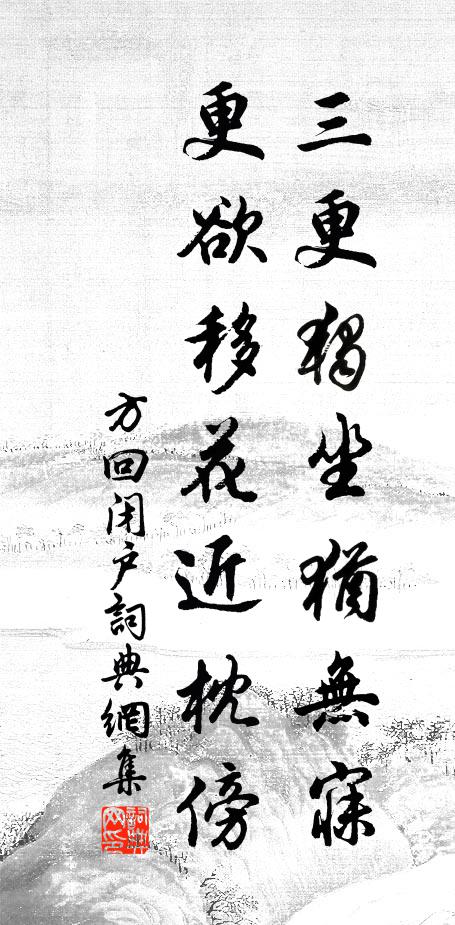 三更獨坐猶無寐
更欲移花近枕傍
方回閉户詞典網集